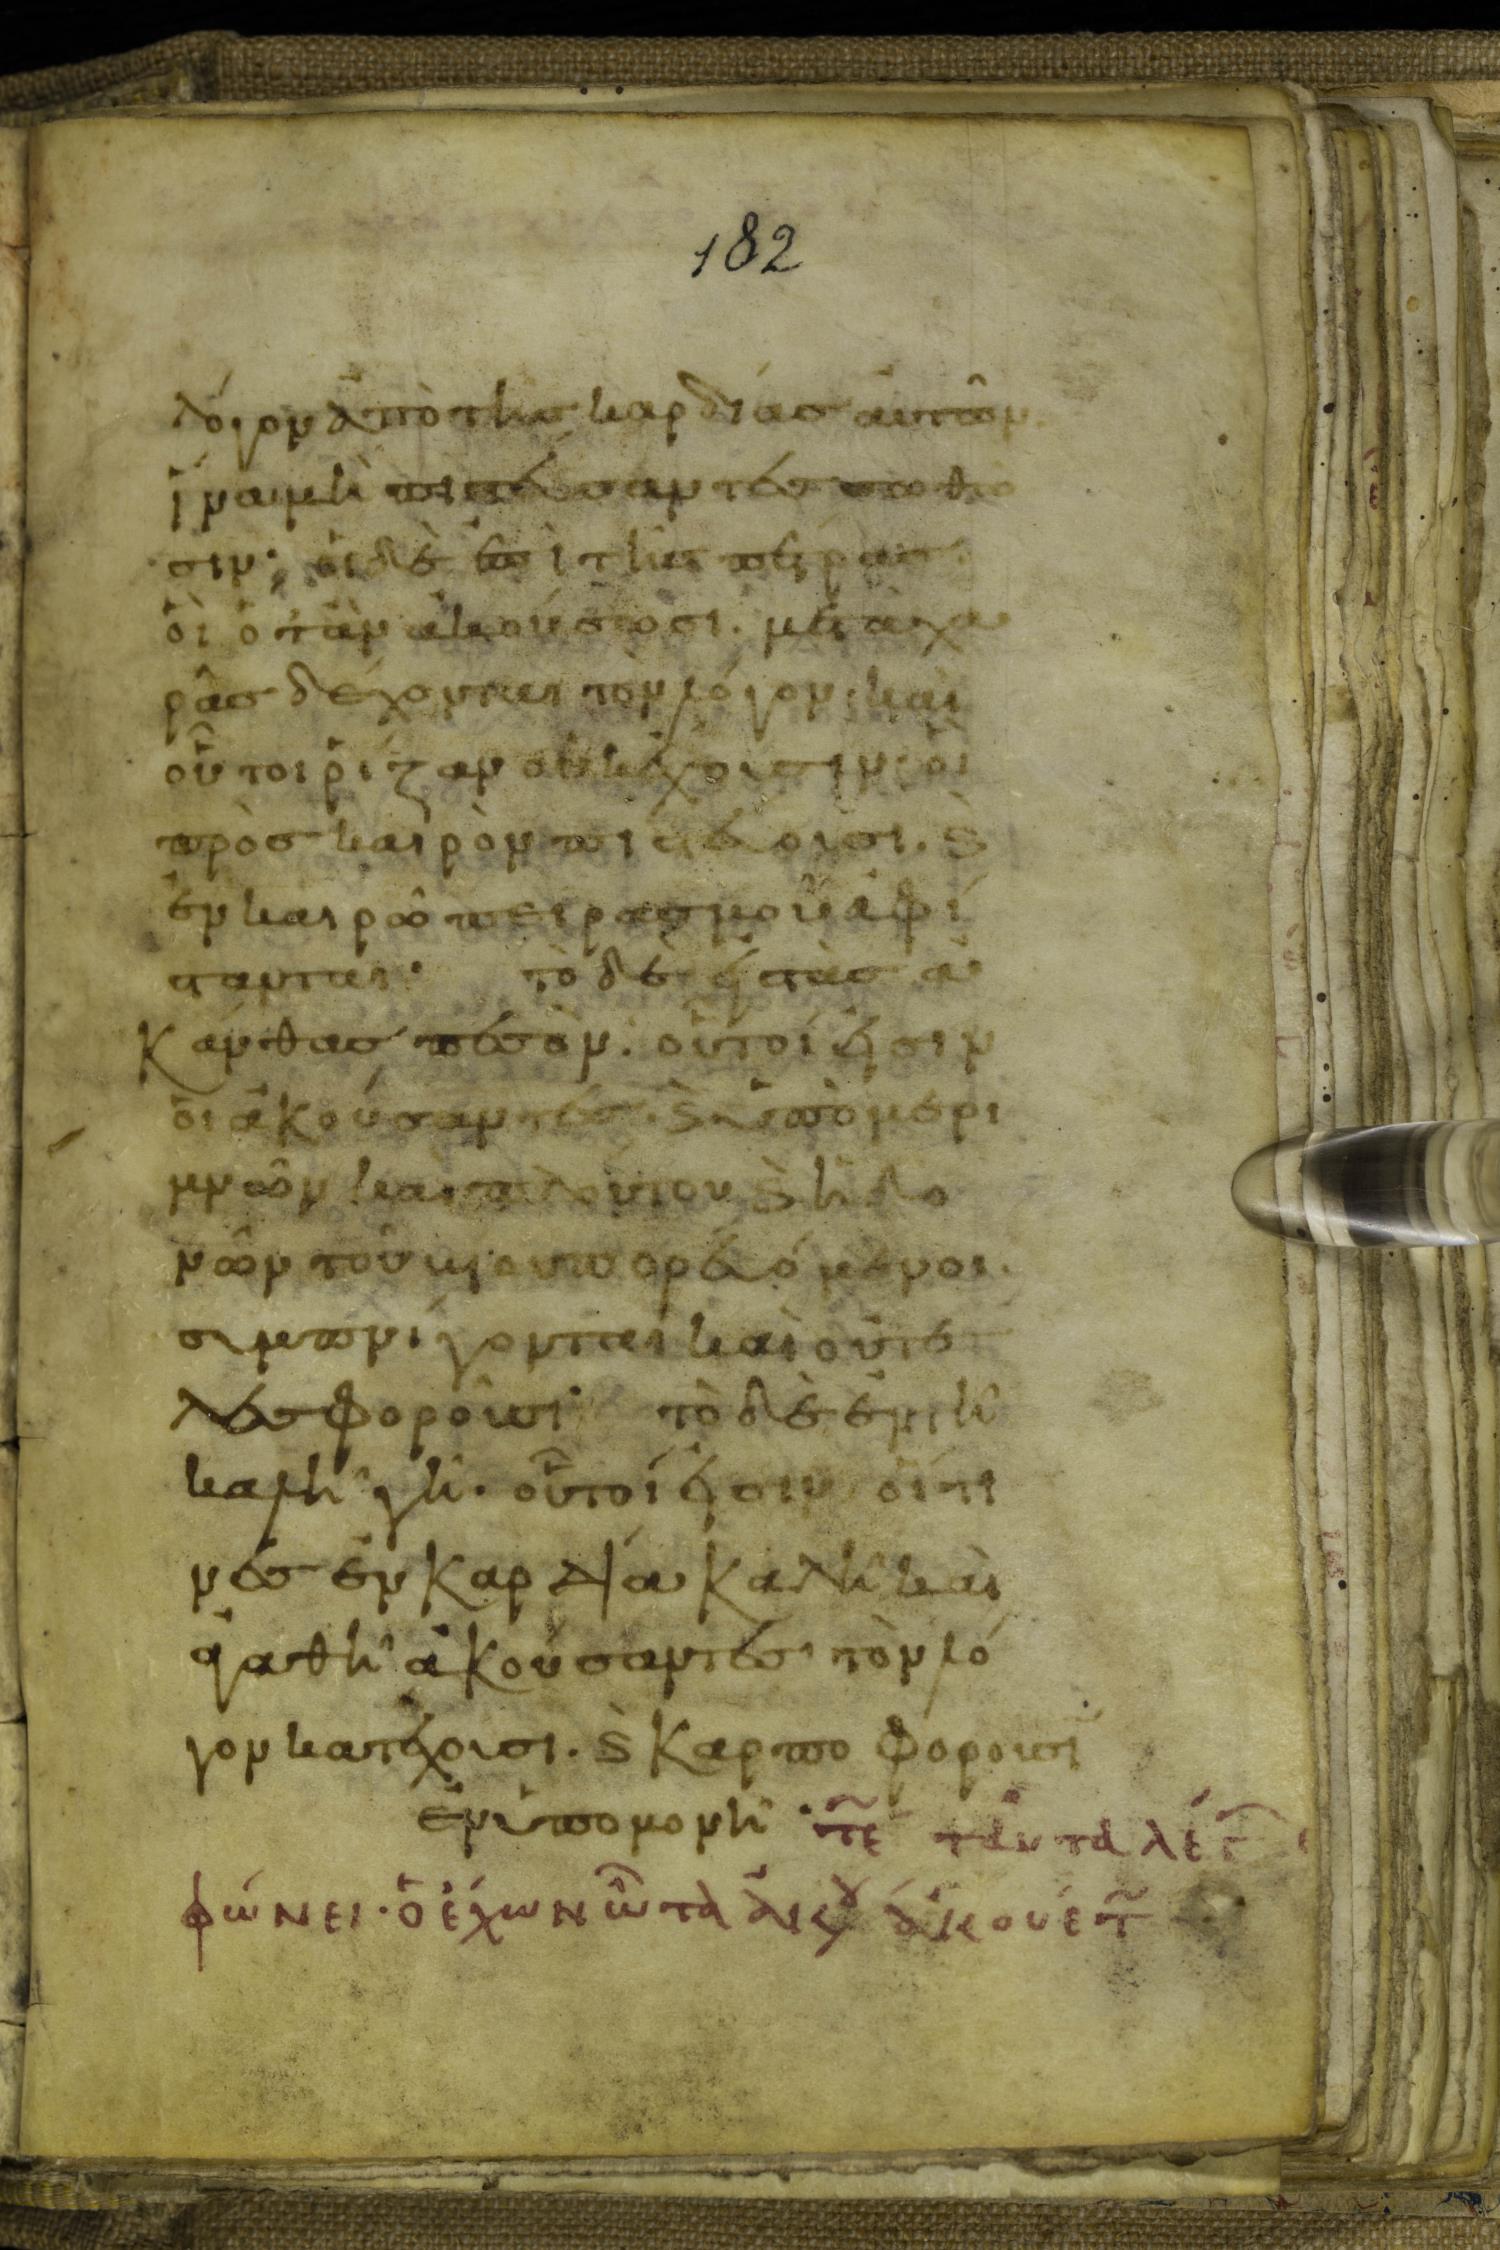 182
λόγον ἀπὸ τῆς καρδίας αὐτῶν.
ἵνα μὴ πιστεύσαντες σωθῶ
σιν· οἱ δὲ ἐπὶ τῆς πέτρας
οἳ ὅταν ἀκούσωσι. μετὰ χα
ρᾶς δέχονται τὸν λόγον· καὶ
οὗτοι ῥίζαν οὐκ ἔχουσιν· οἳ
πρὸς καιρὸν πιστεύουσι. ϗ
ἐν καιρῶ πειρασμοῦ ἀφί
στανται· τὸ δὲ εἰς τὰς ἀ
κάνθας πεσὸν. οὗτοί εἰσιν
οἱ ἀκούσαντες. ϗ ὑπὸ μερι
μνῶν καὶ πλούτου ϗ ἡδο
νῶν τοῦ βίου πορευόμενοι.
συμπνίγονται καὶ οὐ τε
λεσφοροῦσι· τὸ δὲ ἐν τῆ
καλῆ γῆ. οὗτοί εἰσιν οἵτι
νες ἐν καρδία καλῆ καὶ
ἀγαθῆ ἀκούσαντες τὸν λό
γον κατέχουσι. ϗ καρποφοροῦσι
ἐν ὑπομονῆ· ταῦτα λέγ
φώνει· ὁ ἔχων ὦτα ἀκούειν ἀκουέτ